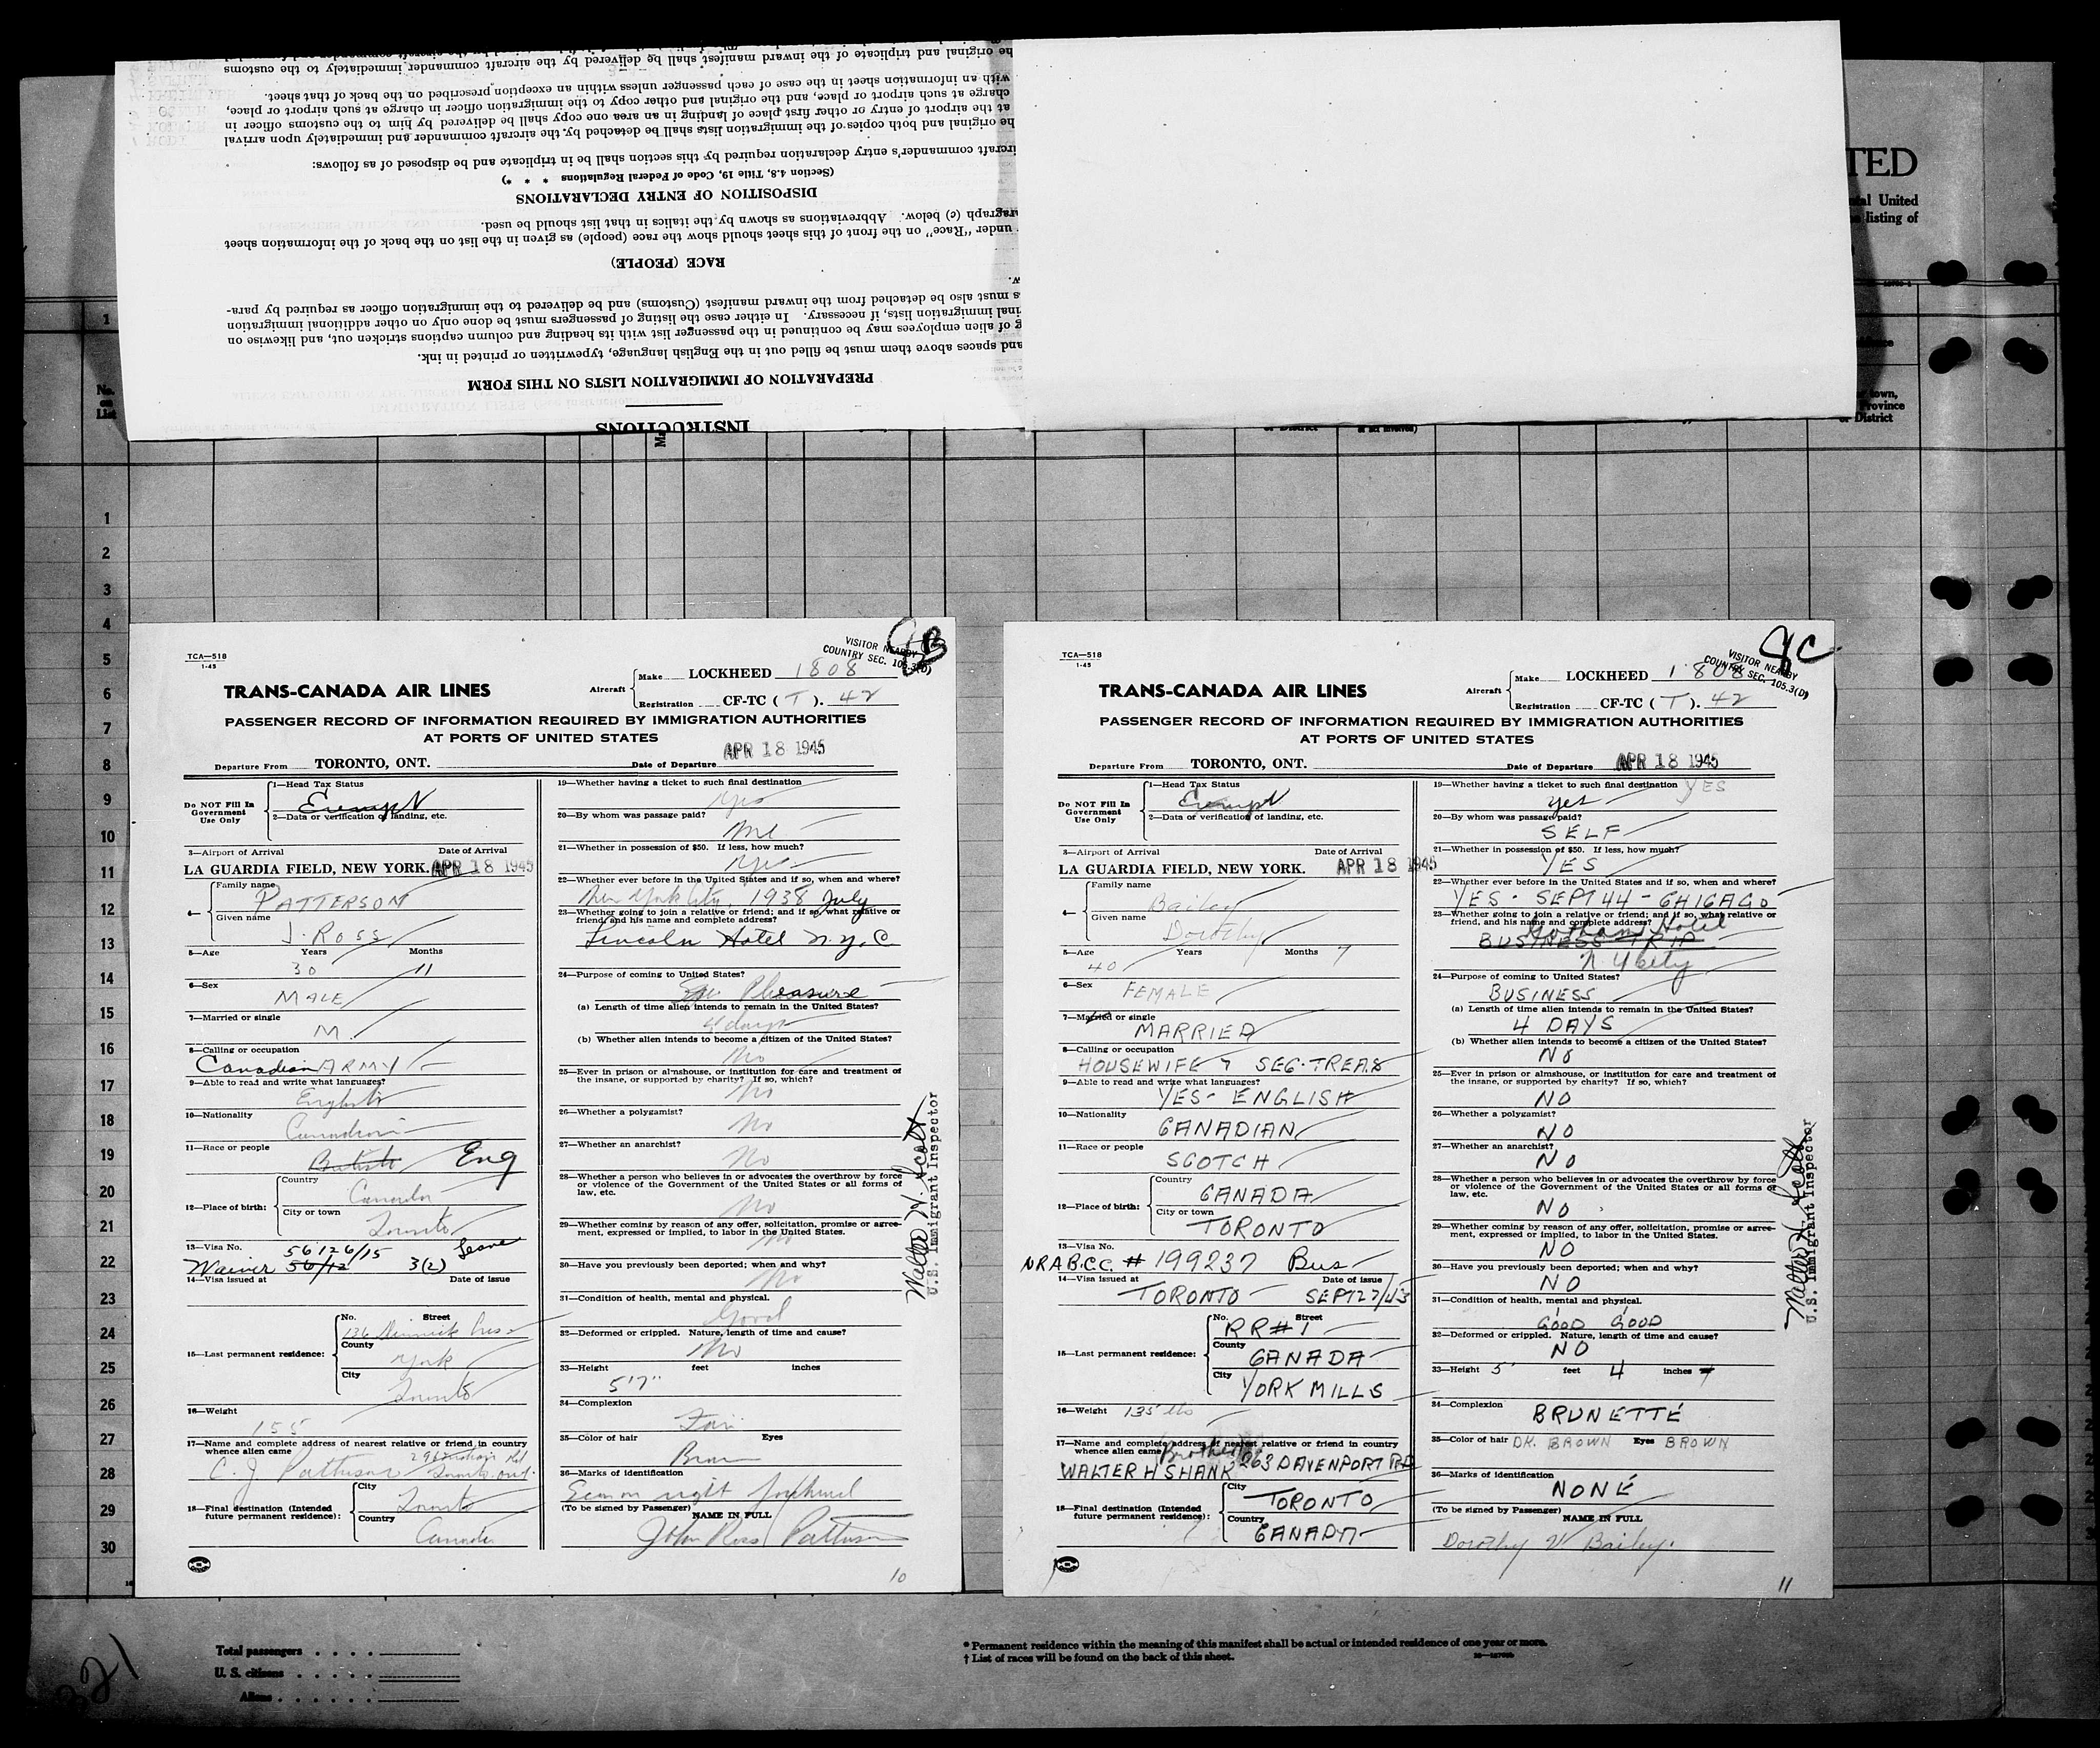 he original and triplicate of the inward manifest shall be delivered by the aircraft commander immediately to the customs
with an information sheet in the case of each passenger unless within an exception prescribed on the back of that sheet.
charge at such airport or place, and the original and other copy to the immigration officer in charge at such airport or place,
at the airport of entry or other first place of landing in an area one copy shall be delivered by him to the customs officer in
he original and both copies of the immigration lists shall be detached by the aircraft commander and immediately upon arrival
ircraft commander's entry declaration required by this section shall be in triplicate and be disposed of as follows:
(Section 4.8, Title 19, Code of Federal Regulations * * *)
DISPOSITION OF ENTRY DECLARATIONS
aragraph (c) below. Abbreviations as shown by the italics in that list should be used.
under "Race" on the front of this sheet should show the race (people) as given in the list on the back of the information sheet
RACE (PEOPLE)
w.
s must also be detached from the inward manifest (Customs) and be delivered to the immigration officer as required by para-
inal immigration lists, if necessary. In either case the listing of passengers must be done only on other additional immigration
g of alien employees may be continued in the passenger list with its heading and column captions stricken out, and likewise on
and spaces above them must be filled out in the English language, typewritten or printed in ink.
PREPARATION OF IMMIGRATION LISTS ON THIS FORM
INSTRUCTIONS
TED
United
listing of
1
No.
on
List
town,
Province
or District
1
2
3
4
5
6
7
8
9
10
11
12
13
14
15
16
17
18
19
20
21
22
23
24
25
26
27
28
29
30
TCA—518
1-45
VISITOR NEARBY
COUNTRY SEC. 105.3(D)
TRANS-CANADA AIR LINES
Aircraft Make LOCKHEED 1808
Registration CF-TC ( T ). 42
PASSENGER RECORD OF INFORMATION REQUIRED BY IMMIGRATION AUTHORITIES
AT PORTS OF UNITED STATES
Departure From TORONTO, ONT. Date of Departure APR 18 1945
Do NOT Fill In
Government
Use Only
1—Head Tax Status
Exempt
2—Data or verification of landing, etc.
3—Airport of Arrival Date of Arrival
LA GUARDIA FIELD, NEW YORK. APR 18 1945
4— Family name
PATTERSON
Given name
J. ROSS
5—Age Years Months
30 11
6—Sex
MALE
7—Married or single
M
8—Calling or occupation
Canadian ARMY
9—Able to read and write what languages?
English
10—Nationality
Canadian
11—Race or people
British Eng
12—Place of birth: Country
Canada
City or town
Toronto
13—Visa No. 56126/15 Leave
Waiver 56/12 3(2)
14—Visa issued at Date of issue
15—Last permanent residence: No. Street
136
County
York
City
Toronto
16—Weight
155
17—Name and complete address of nearest relative or friend in country
whence alien came
C. J. Patterson Toronto. Ont.
18—Final destination (Intended
future permanent residence): City
Toronto
Country
Canada
19—Whether having a ticket to such final destination
yes
20—By whom was passage paid?
me
21—Whether in possession of $50. If less, how much?
yes
22—Whether ever before in the United States and if so, when and where?
New York City, 1938 July
23—Whether going to join a relative or friend; and if so, what relative or
friend, and his name and complete address?
Lincoln Hotel N.Y.C.
24—Purpose of coming to United States?
Pleasure
(a) Length of time alien intends to remain in the United States?
4 days
(b) Whether alien intends to become a citizen of the United States?
No
25—Ever in prison or almshouse, or institution for care and treatment of
the insane, or supported by charity? If so, which?
No
26—Whether a polygamist?
No
27—Whether an anarchist?
No
28—Whether a person who believes in or advocates the overthrow by force
or violence of the Government of the United States or all forms of
law, etc.
No
29—Whether coming by reason of any offer, solicitation, promise or agree-
ment, expressed or implied, to labor in the United States.
No
30—Have you previously been deported; when and why?
No
31—Condition of health, mental and physical.
Good
32—Deformed or crippled. Nature, length of time and cause?
No
33—Height feet inches
5'7"
34—Complexion
Fair
35—Color of hair Eyes
Brown
36—Marks of identification
Scar on right forehead
(To be signed by Passenger)
NAME IN FULL
John Ross Patterson
Walter H. Scott
U.S. Immigrant Inspector
10
TCA—518
1-45
VISITOR NEARBY
COUNTRY SEC. 105.3(D)
TRANS-CANADA AIR LINES
Aircraft Make LOCKHEED 1808
Registration CF-TC ( T ). 42
PASSENGER RECORD OF INFORMATION REQUIRED BY IMMIGRATION AUTHORITIES
AT PORTS OF UNITED STATES
Departure From TORONTO, ONT. Date of Departure APR 18 1945
Do NOT Fill In
Government
Use Only
1—Head Tax Status
Exempt
2—Data or verification of landing, etc.
3—Airport of Arrival Date of Arrival
LA GUARDIA FIELD, NEW YORK. APR 18 1945
4— Family name
Bailey
Given name
Dorothy
5—Age Years Months 7
40
6—Sex
FEMALE
7—Married or single
MARRIED
8—Calling or occupation
HOUSEWIFE & SEC-TREAS
9—Able to read and write what languages?
YES - ENGLISH
10—Nationality
CANADIAN
11—Race or people
SCOTCH
12—Place of birth: Country
CANADA
City or town
TORONTO
13—Visa No.
NRABCC # 199237 Bus
14—Visa issued at Date of issue
TORONTO SEPT 27/43
15—Last permanent residence: No. Street
RR#1
County
CANADA
City
YORK MILLS
16—Weight 135 lbs
17—Name and complete address of nearest relative or friend in country
whence alien came Brother
WALTER H SHANK 263 DAVENPORT RD
18—Final destination (Intended
future permanent residence): City
TORONTO
Country
CANADA
19—Whether having a ticket to such final destination YES
yes
20—By whom was passage paid?
SELF
21—Whether in possession of $50. If less, how much?
YES
22—Whether ever before in the United States and if so, when and where?
YES - SEPT 44 - CHICAGO
23—Whether going to join a relative or friend; and if so, what relative or
friend, and his name and complete address?
Gotham Hotel
BUSINESS TRIP
N. Y City
24—Purpose of coming to United States?
BUSINESS
(a) Length of time alien intends to remain in the United States?
4 DAYS
(b) Whether alien intends to become a citizen of the United States?
NO
25—Ever in prison or almshouse, or institution for care and treatment of
the insane, or supported by charity? If so, which?
NO
26—Whether a polygamist?
NO
27—Whether an anarchist?
NO
28—Whether a person who believes in or advocates the overthrow by force
or violence of the Government of the United States or all forms of
law, etc.
NO
29—Whether coming by reason of any offer, solicitation, promise or agree-
ment, expressed or implied, to labor in the United States.
NO
30—Have you previously been deported; when and why?
NO
31—Condition of health, mental and physical.
GOOD GOOD
32—Deformed or crippled. Nature, length of time and cause?
NO
33—Height 5' feet 4 inches
34—Complexion
BRUNETTE
35—Color of hair DK. BROWN Eyes BROWN
36—Marks of identification
NONE
(To be signed by Passenger)
NAME IN FULL
Dorothy V Bailey.
Walter H. Scott
U.S. Immigrant Inspector
11
Total passengers . . . .
U. S. citizens . . . . .
Aliens . . . . . .
* Permanent residence within the meaning of this manifest shall be actual or intended residence of one year or more.
† List of races will be found on the back of this sheet.
321